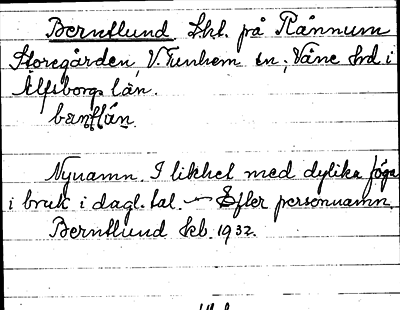 Berntlund. Lht. på Rännum
Storegården, V. Tunhem sn; Väne hd i
Älfsborgs län.
Nynamn. I likhet med dylika föga
i bruk i dagl. tal. — Efter personnamn.
Berntlund kb. 1932.